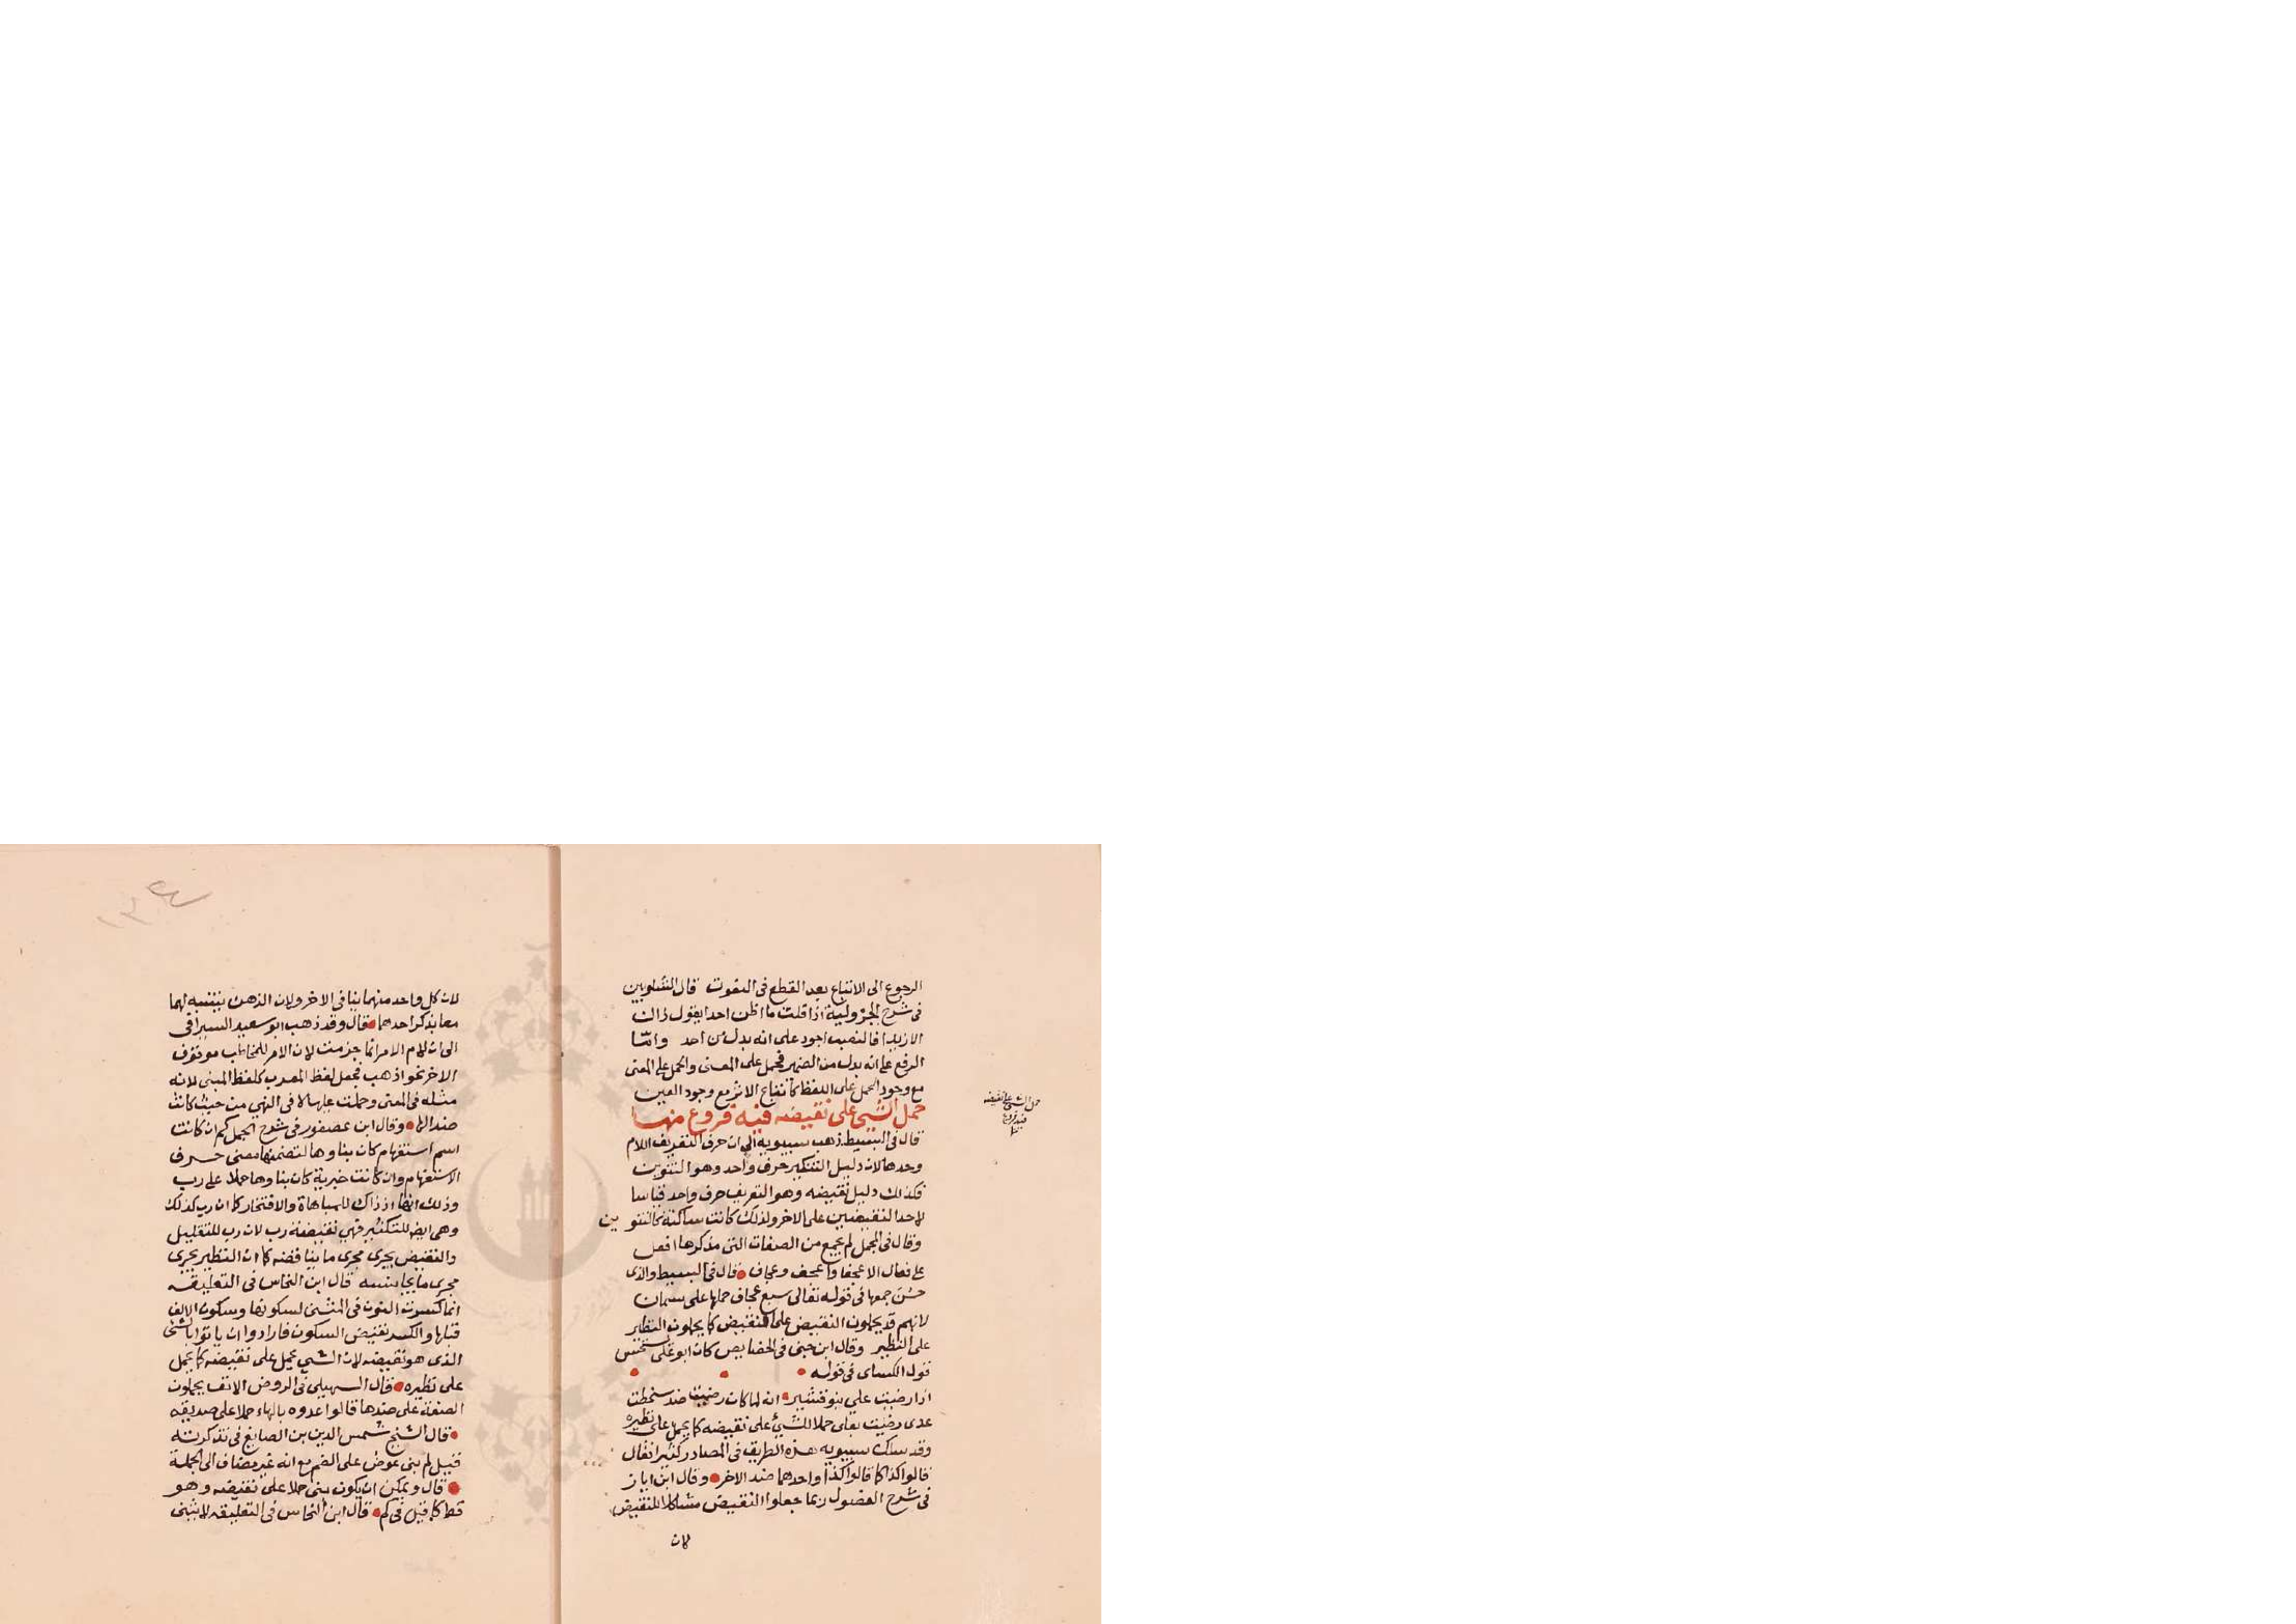 الرجوع الى الاتباع بعد القطع فى النعوت قال الشلوبين
فى شرح الجزولية اذا قلت ما اظن احدا يقول ذاك
الا زيدا فالنصب اجود على انه بدل من احد واما
الرفع على انه بدل من الضمير فحمل على المعنى والحمل على المعنى
مع وجود الحمل على اللفظ كاتباع الاثر مع وجود العين
حمل الشى على نقيضه فيه فروع منها
قال فى البسيط ذهب سيبويه الى ان حرف التعريف اللام
وحدها لان دليل التنكير حرف واحد وهو التنوين
فكذلك دليل نقيضه وهو التعريف حرف واحد قياسا
لاحد النقيضين على الاخر ولذلك كانت ساكنة كالتنوين
وقال فى المجمل لم يجمع من الصفات التى مذكرها افعل
على فعال الا عجفا واعجف وعجاف قال فى البسيط والذى
حسن جمعها فى قوله تعالى سبع عجاف حملها على سمان
لانهم قد يحملون النقيض على النقيض كما يحملون النظير
على النظير وقال ابن جنى فى الخصايص كان ابو على يستحسن
قول الكساى فى قوله
اذا رضيت على بنو قشير انه لما كان رضيت ضد سخطت
عدى رضيت بعلى حملا للشئ على نقيضه كما يحمل على نظيره
وقد سلك سيبويه هذه الطريق فى المصادر كثيرا فقال
قالوا كذا كما قالوا كذا واحدهما ضد الاخر وقال ابن اياز
فى شرح الفصول ربما جعلوا النقيض مشاكلا للنقيض
لان
حمل الشى على نقيضه
فيه فروع
لان كل واحد منهما ينافى الاخر ولان الذهن يتنبه لهما
معا بذكر احدهما قال وقد ذهب ابو سعيد السيرافى
الى ان لام الامر انما جزمت لان الامر للمخاطب موقوف
الاخر نحو اذهب فجعل لفظ المعرب كلفظ المبنى لانه
مثله فى المعنى وحملت عليها لا فى النهى من حيث كانت
ضدا لها وقال ابن عصفور فى شرح الجمل كم ان كانت
اسم استفهام كان بناوها لتضمنها معنى حرف
الاستفهام وان كانت خبرية كان بناوها حملا على رب
وذلك انها اذ ذاك للمباهاة والافتخار كما ان رب كذلك
وهى ايضا للتكثير فهى نقيضة رب لان رب للتقليل
والنقيض يجرى مجرى ما يناقضه كما ان النظير يجرى
مجرى ما يجانسه قال ابن النحاس فى التعليقه
انما كسرت النون فى المثنى لسكونها وسكون الالف
قبلها والكسر نقيض السكون فارادوا ان ياتوا بالشى
الذى هو نقيضه لان الشى يحمل على نقيضه كما يحمل
على نظيره قال السهيلى فى الروض الانف يحملون
الصفة على ضدها قالوا عدوه بالهاء حملا على صديقه
قال الشيخ شمس الدين بن الصايغ فى تذكرته
قيل لم بنى عوض على الضم مع انه غير مضاف الى الجملة
قال ويمكن ان يكون بنى حملا على نقيضه وهو
قط كما قيل فى كم قال ابن النحاس فى التعليقه لا يثنى